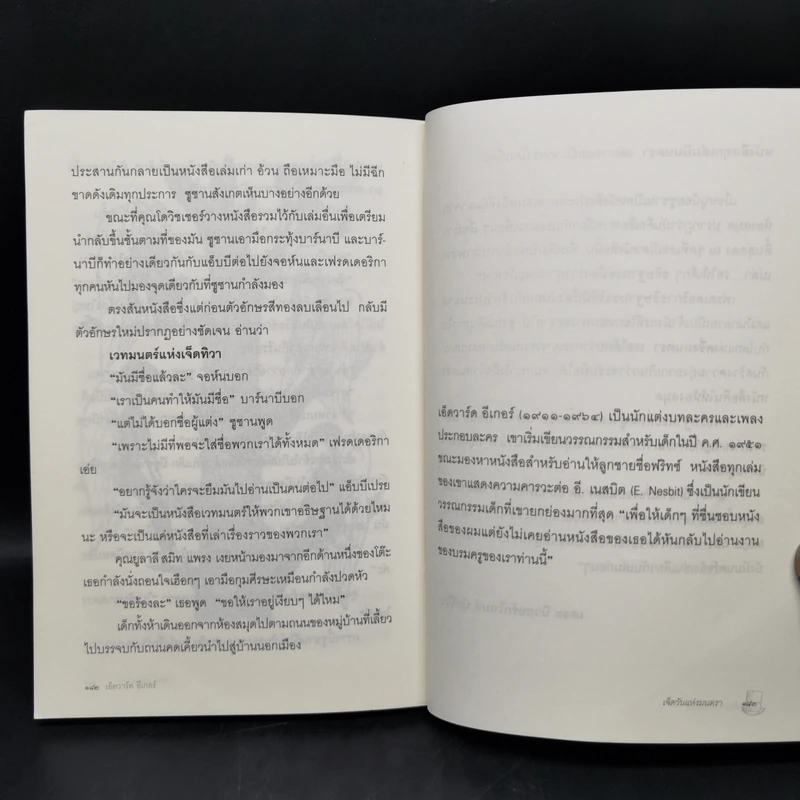 ประสานกันกลายเป็นหนังสือเล่มเก่า อ้วน ถือเหมาะมือ ไม่มีฉีก
ขาดดังเดิมทุกประการ ซูซานสังเกตเห็นบางอย่างอีกด้วย
ขณะที่คุณโดวิชเชอร์วางหนังสือรวมไว้กับเล่มอื่นเพื่อเตรียม
นำกลับขึ้นชั้นตามที่ของมัน ซูซานเอามือกระทุ้งบาร์นาบี และบาร์-
นาบีก็ทำอย่างเดียวกันกับแอ็บบีต่อไปยังจอห์นและเฟรดเดอริกา
ทุกคนหันไปมองจุดเดียวกับที่ซูซานกำลังมอง
ตรงสันหนังสือซึ่งแต่ก่อนตัวอักษรสีทองลบเลือนไป กลับมี
ตัวอักษรใหม่ปรากฏอย่างชัดเจน อ่านว่า
เวทมนตร์แห่งเจ็ดทิวา
“มันมีชื่อแล้วละ” จอห์นบอก
“เราเป็นคนทำให้มันมีชื่อ” บาร์นาบีบอก
“แต่ไม่ได้บอกชื่อผู้แต่ง” ซูซานพูด
“เพราะไม่มีที่พอจะใส่ชื่อพวกเราได้ทั้งหมด” เฟรดเดอริกา
เอ่ย
“อยากรู้จังว่าใครจะยืมมันไปอ่านเป็นคนต่อไป” แอ็บบีเปรย
“มันจะเป็นหนังสือเวทมนตร์ให้พวกเขาอธิษฐานได้ด้วยไหม
นะ หรือจะเป็นแค่หนังสือที่เล่าเรื่องราวของพวกเรา”
คุณยูลาลี สมิท แพรง เงยหน้ามองมาจากอีกด้านหนึ่งของโต๊ะ
เธอกำลังนั่งถอนใจเฮือกๆ เอามือกุมศีรษะเหมือนกำลังปวดหัว
“ขอร้องละ” เธอพูด “ขอให้เราอยู่เงียบๆ ได้ไหม”
เด็กทั้งห้าเดินออกจากห้องสมุดไปตามถนนของหมู่บ้านที่เลี้ยว
ไปบรรจบกับถนนคดเคี้ยวนำไปสู่บ้านนอกเมือง
๑๘๒ เอ็ดวาร์ด อีเกอร์
เอ็ดวาร์ด อีเกอร์ (๑๙๑๑-๑๙๖๔) เป็นนักแต่งบทละครและเพลง
ประกอบละคร เขาเริ่มเขียนวรรณกรรมสำหรับเด็กในปี ค.ศ. ๑๙๕๑
ขณะมองหาหนังสือสำหรับอ่านให้ลูกชายชื่อฟริทซ์ หนังสือทุกเล่ม
ของเขาแสดงความคารวะต่อ อี. เนสบิต (E. Nesbit) ซึ่งเป็นนักเขียน
วรรณกรรมเด็กที่เขายกย่องมากที่สุด “เพื่อให้เด็กๆ ที่ชื่นชอบหนัง
สือของผมแต่ยังไม่เคยอ่านหนังสือของเธอได้หันกลับไปอ่านงาน
ของบรมครูของเราท่านนี้”
เจ็ดวันแห่งมนตรา ๑๘๓